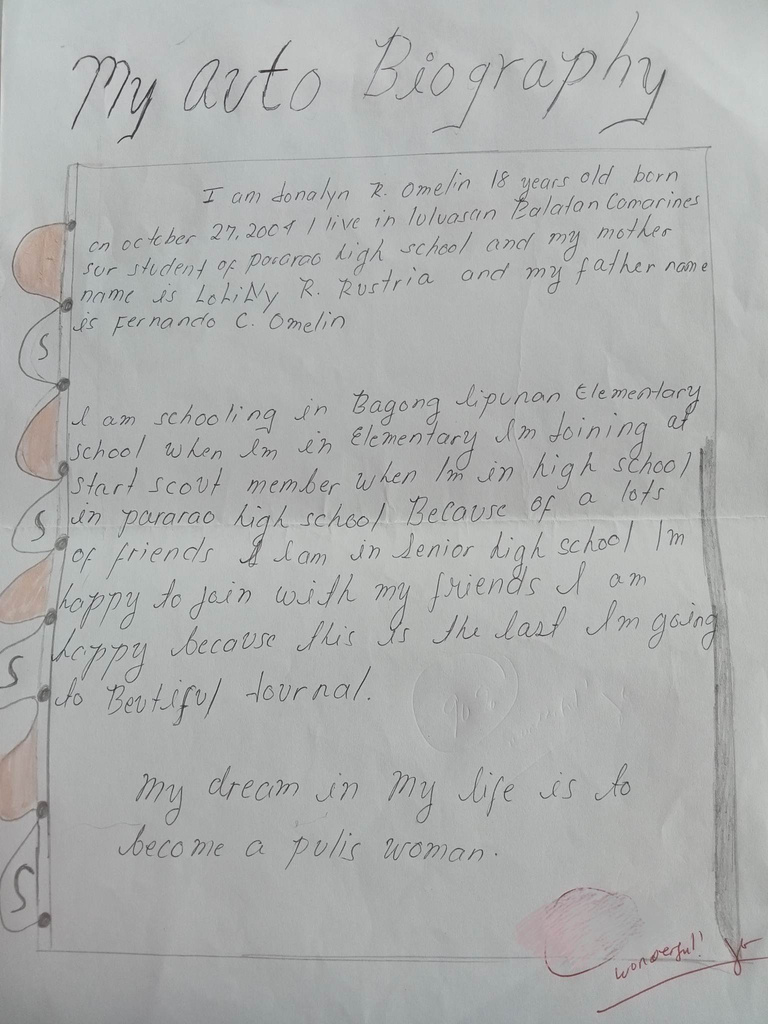 My auto Biography
I am Jonalyn R. Omelin 18 years old born
on october 27, 2004 I live in luluasan Balatan Camarines
sur student of pararao high school and my mother
name is LoLiNy R. Rustria and my father name
is Fernando C. Omelin
I am schooling in Bagong lipunan Elementary
school when Im in Elementary Im Joining at
Start scout member when Im in high school
in pararao high school Because of a lots
of friends I am in Senior high school Im
happy to join with my friends I am
happy because this is the last Im going
to Beutiful Journal.
My dream in My life is to
become a pulis woman.
wonderful!
S
S
S
S